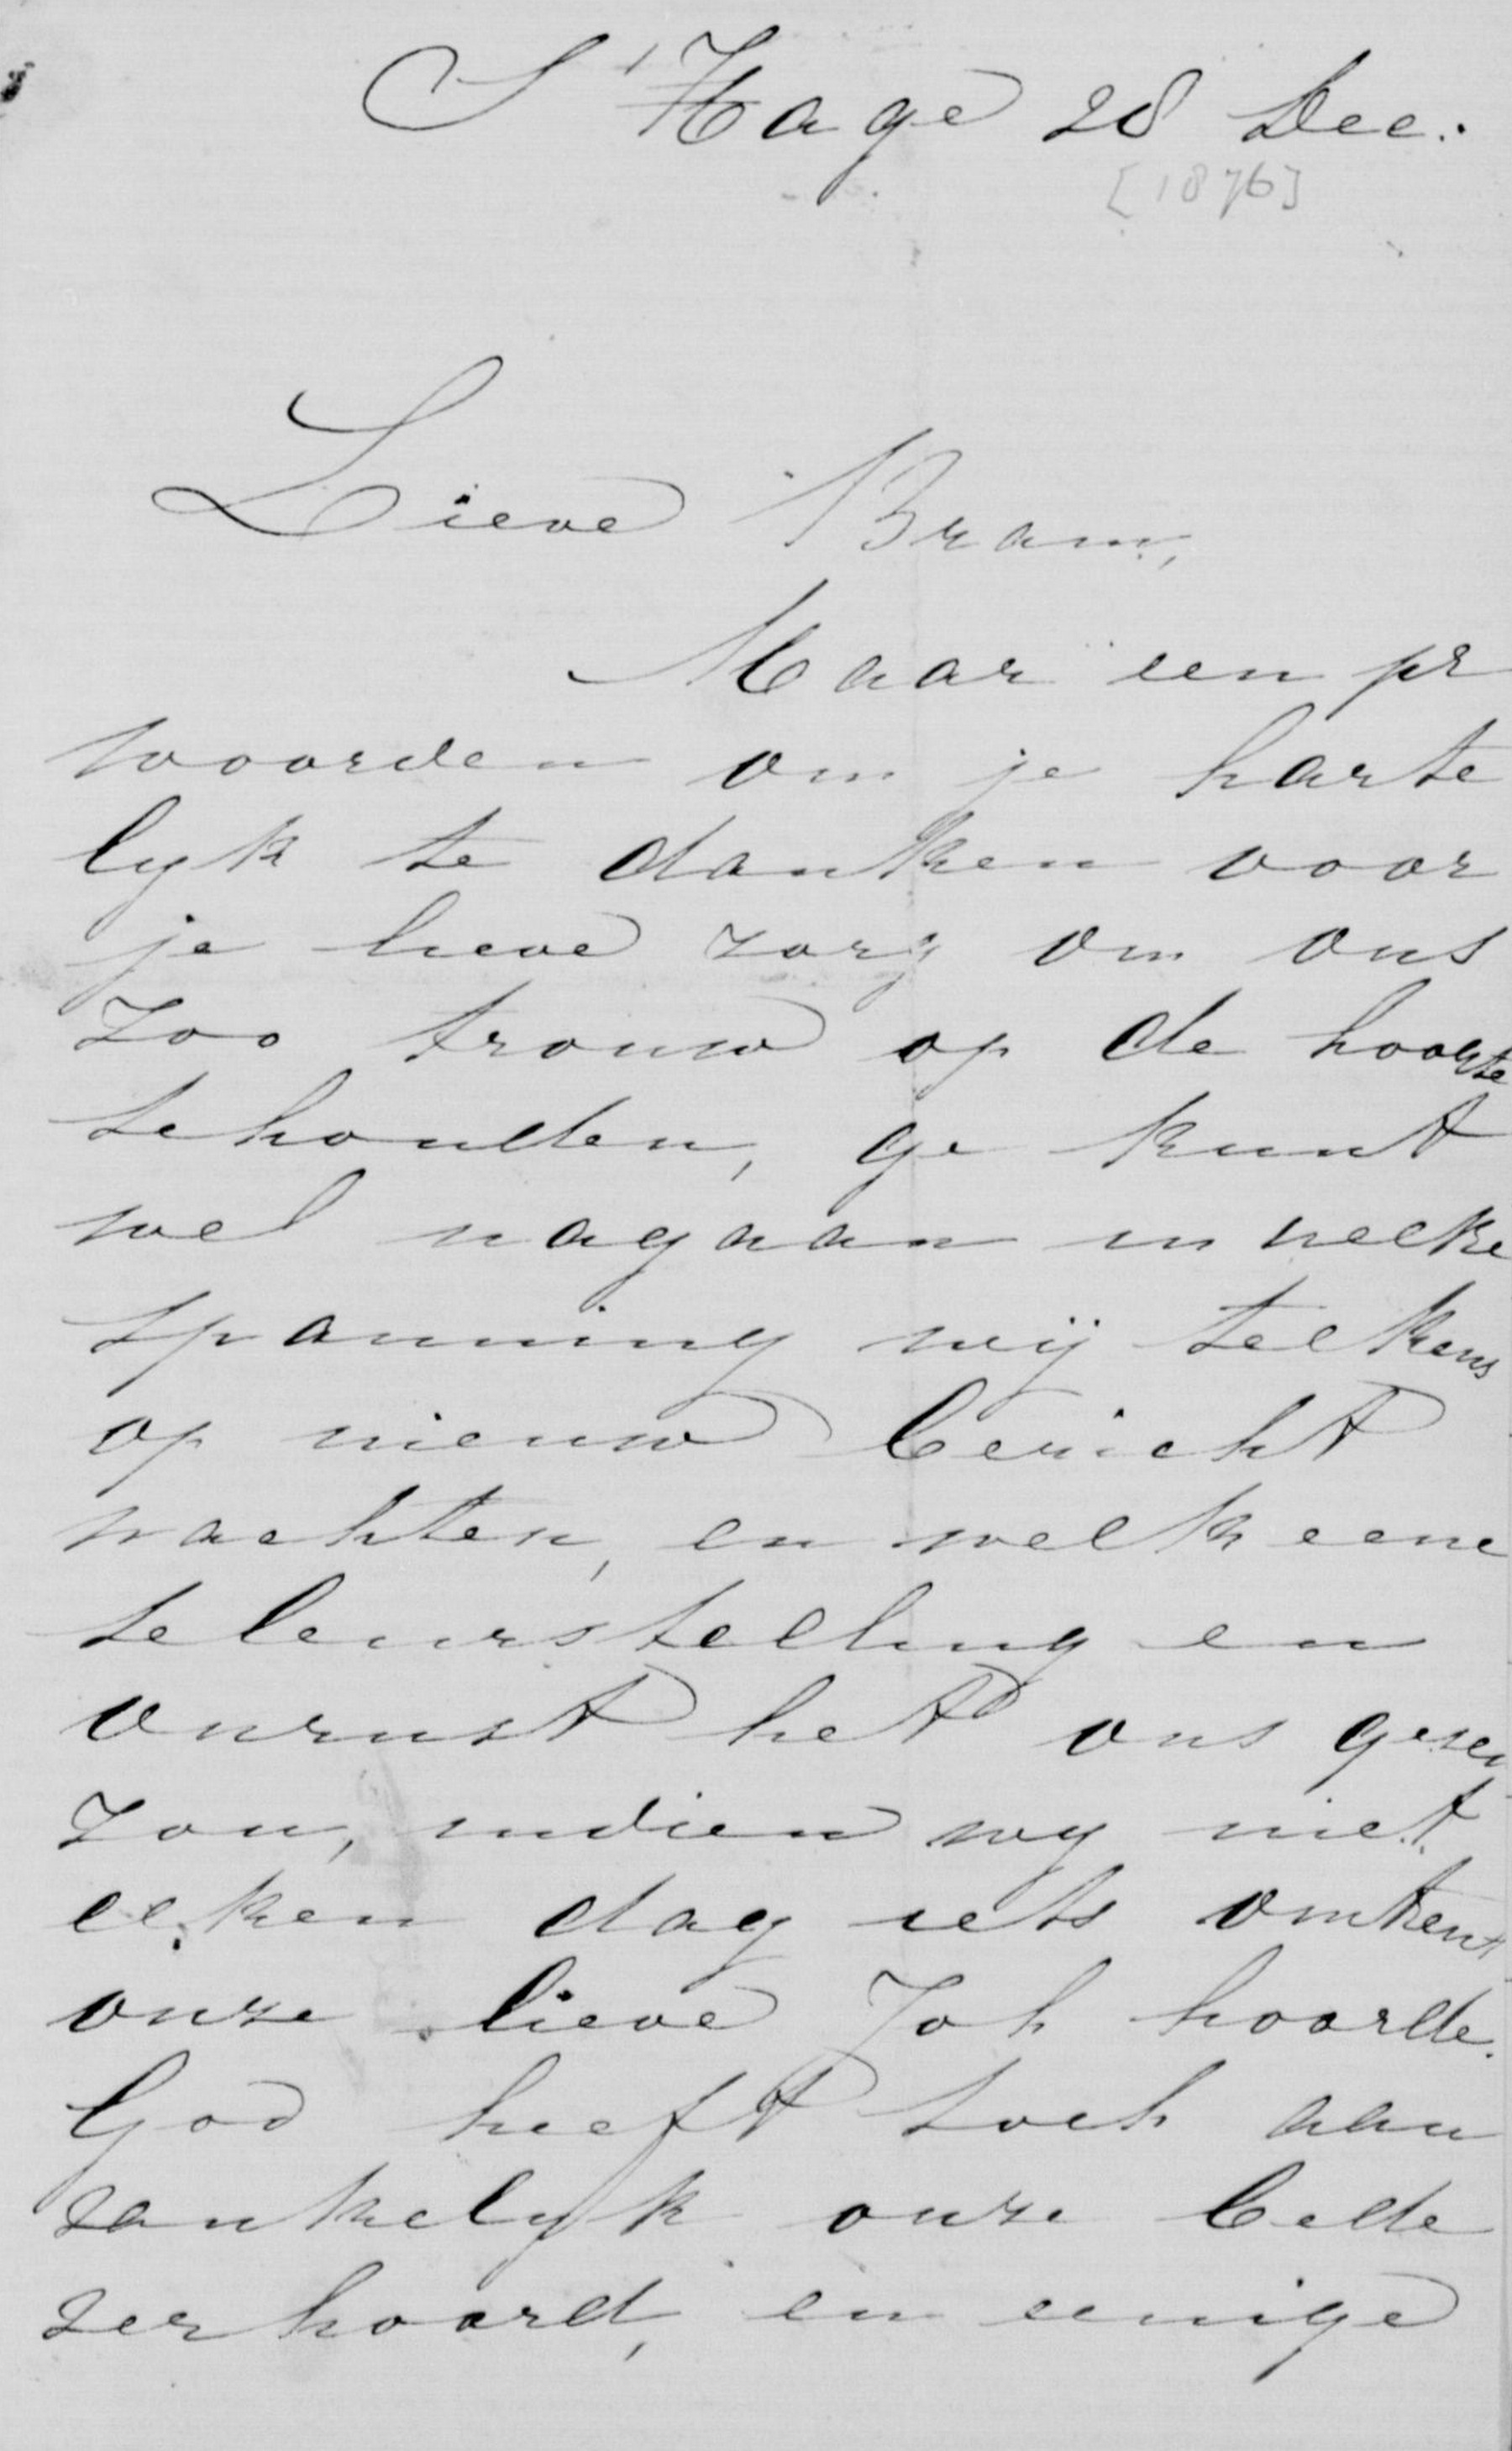 S' Hage 28 Dec.
[1876]
Lieve Bram,
Maar een pr
woorden om je harte
lyk te danken voor
je lieve zorg om ons
zoo trouw op de hoogte
te houden, ge kunt
wel nagaan in welke
spanning wij telkens
op nieuw bericht
wachten, en welk eene
teleurstelling en
onrust het ons geven
zou, indien wy niet
elken dag iets omtrent
onze lieve Joh hoorde.
God heeft toch aan
vankelyk onze bede
verhoord, en eenige